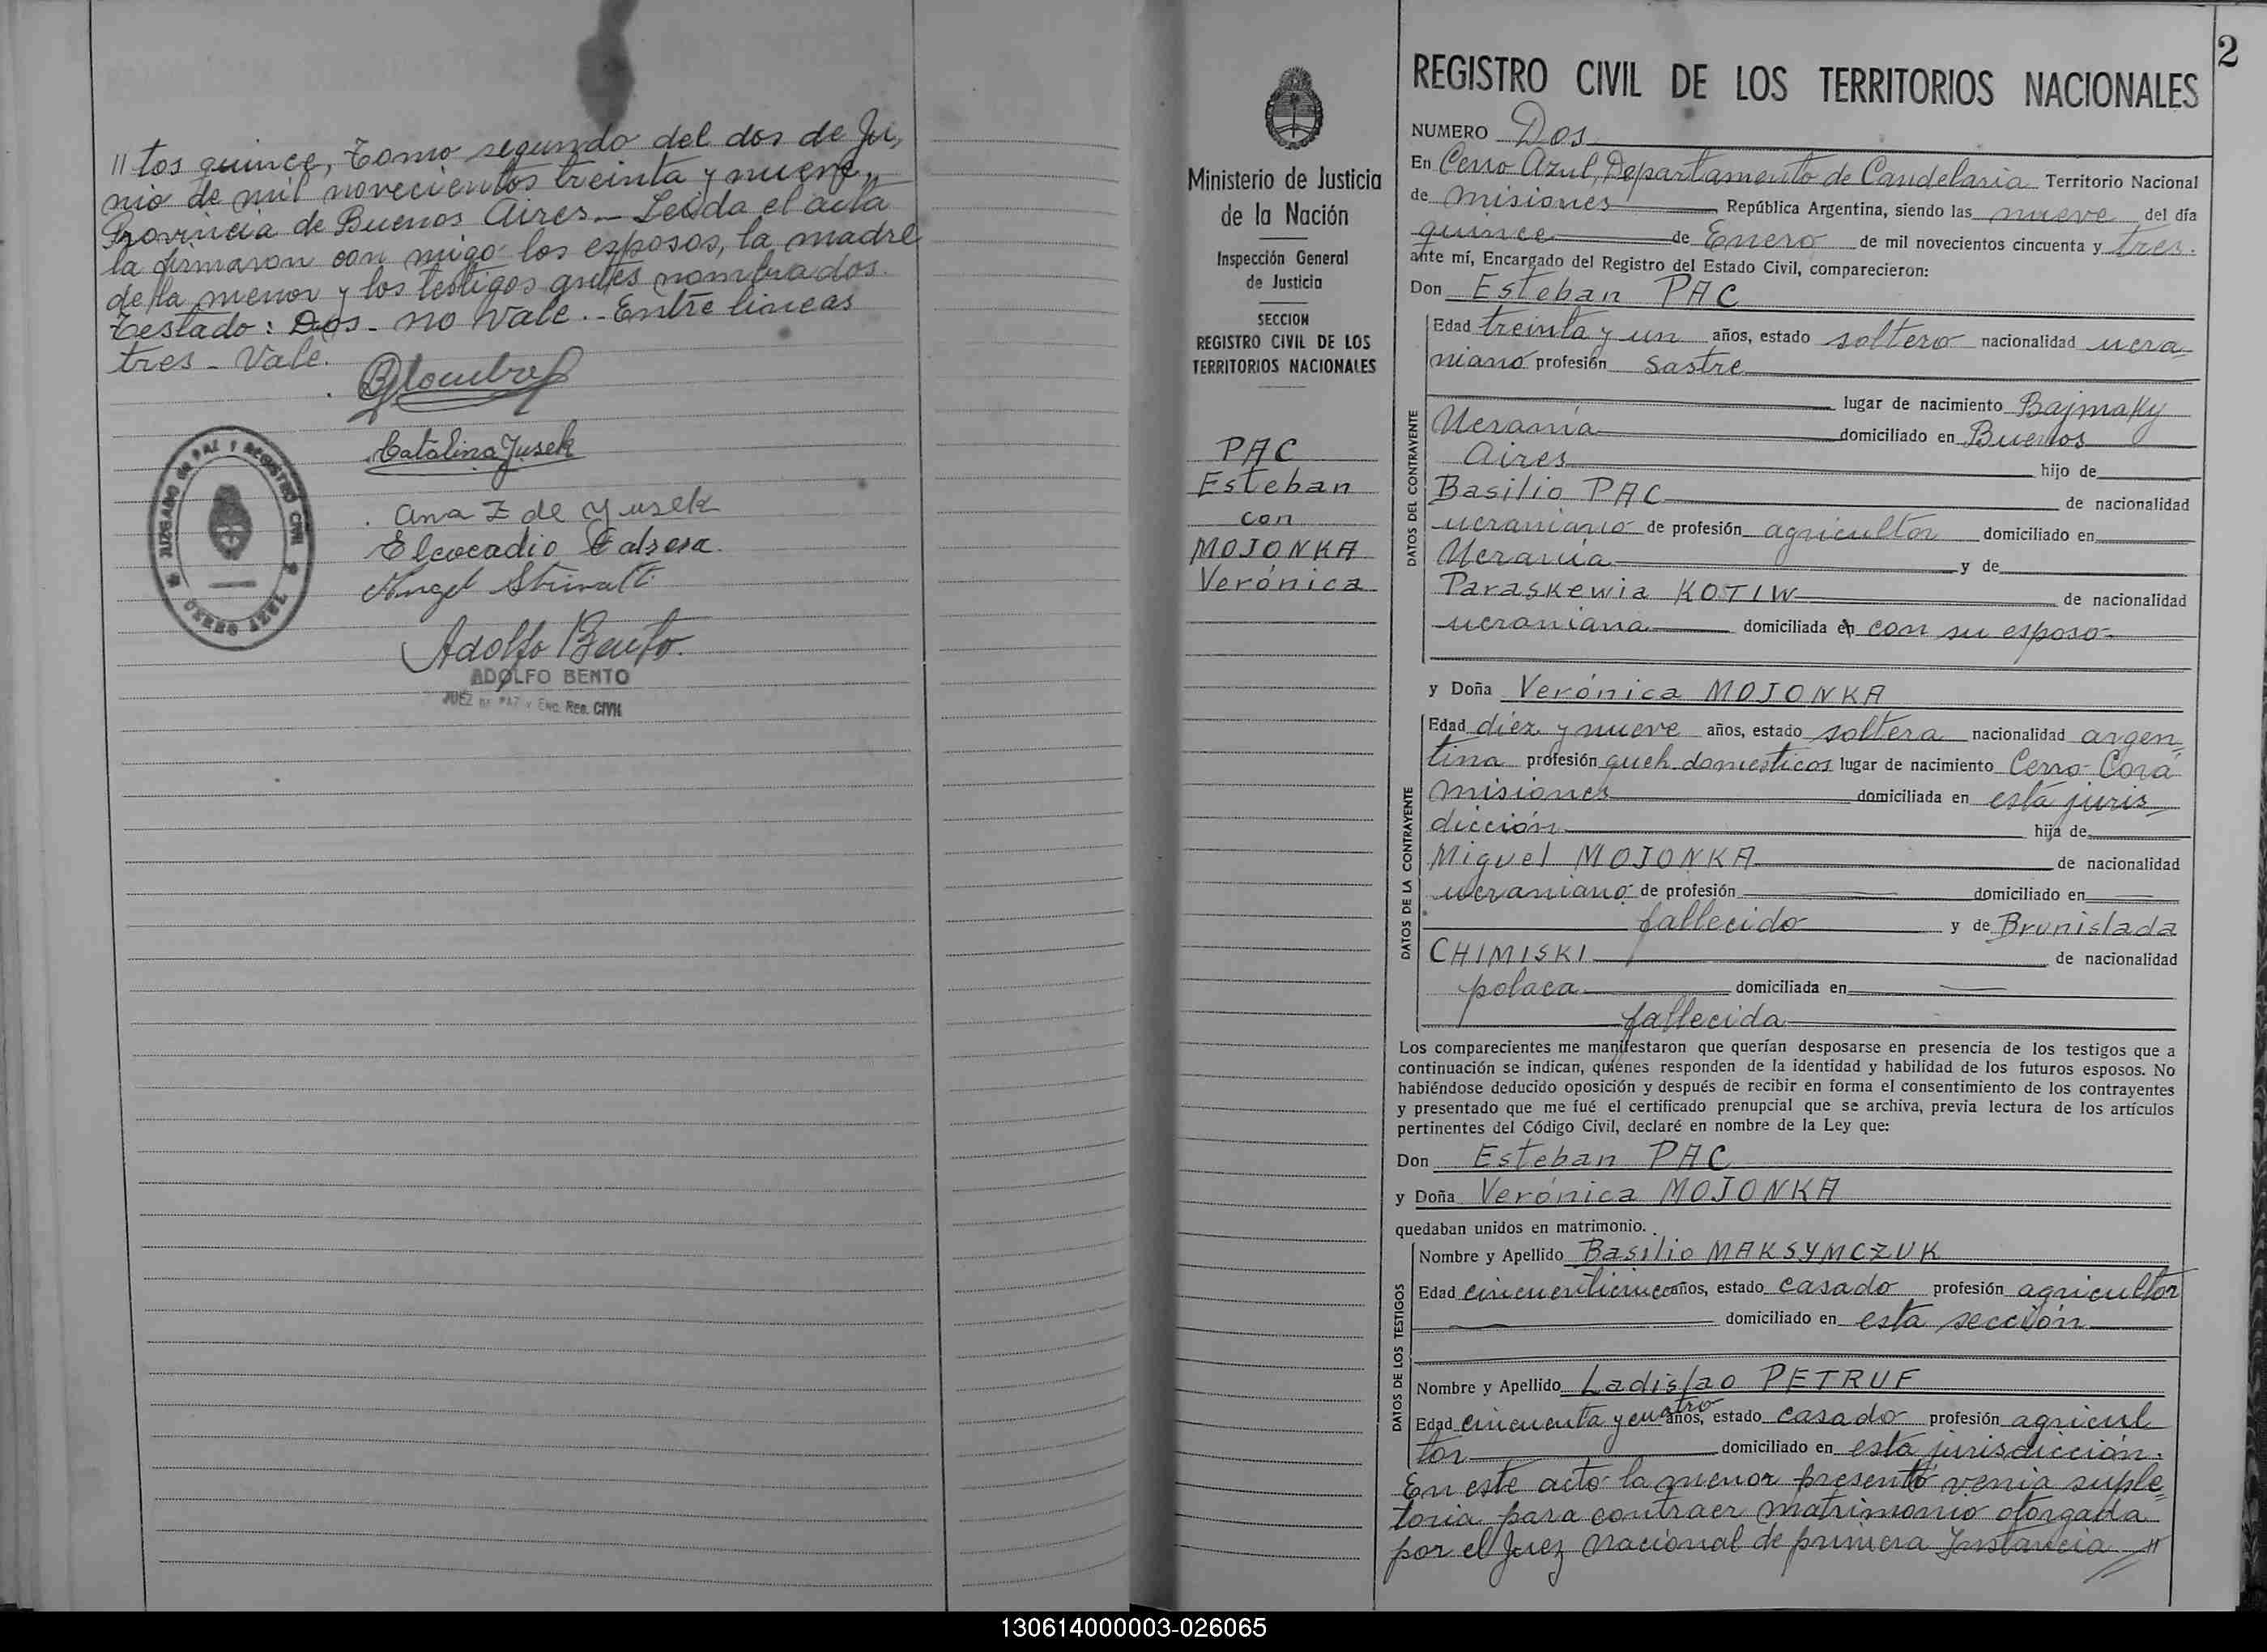 " tos quince, Tomo segundo del dos de Ju-
nio de mil novecientos treinta y nueve,,
Provincia de Buenos Aires.- Leida el acta
la firmaron con migo los esposos, la madre
de la menor y los testigos antes nombrados.
Testado: Dos - no vale.- Entre lineas
tres - Vale.
Catalina Jusek
Ana Z de Yusek
Eleocadio Cabrera
Angel
Adolfo Bento.
ADOLFO BENTO
JUEZ DE PAZ Y ENC. REG. CIVIL
JUZGADO de PAZ Y REGISTRO CIVIL
CERRO AZUL
Ministerio de Justicia
de la Nación
Inspección General
de Justicia
SECCION
REGISTRO CIVIL DE LOS
TERRITORIOS NACIONALES
PAC
Esteban
con
MOJONKA
Verónica
2
REGISTRO CIVIL DE LOS TERRITORIOS NACIONALES
NUMERO Dos
En Cerro Azul, Departamento de Candelaria Territorio Nacional
de Misiones República Argentina, siendo las nueve del día
quince de Enero de mil novecientos cincuenta y tres.
ante mí, Encargado del Registro del Estado Civil, comparecieron:
Don Esteban PAC
DATOS DEL CONTRAYENTE
Edad treinta y un años, estado soltero nacionalidad ucra
niano profesión Sastre
lugar de nacimiento Bajmaky
Ucrania domiciliado en Buenos
Aires hijo de
Basilio PAC de nacionalidad
ucraniano de profesión agricultor domiciliado en
Ucrania y de
Paraskewia KOTIW de nacionalidad
ucraniana domiciliada en con su esposo-
y Doña Verónica MOJONKA
DATOS DE LA CONTRAYENTE
Edad diez y nueve años, estado soltera nacionalidad argen
tina profesión queh. domesticos lugar de nacimiento Cerro Corá
Misiones domiciliada en esta juris
dicción hija de
Miguel MOJONKA de nacionalidad
ucraniano de profesión domiciliado en
fallecido y de Brunislada
CHIMISKI de nacionalidad
polaca domiciliada en
fallecida
Los comparecientes me manifestaron que querían desposarse en presencia de los testigos que a
continuación se indican, quienes responden de la identidad y habilidad de los futuros esposos. No
habiéndose deducido oposición y después de recibir en forma el consentimiento de los contrayentes
y presentado que me fué el certificado prenupcial que se archiva, previa lectura de los artículos
pertinentes del Código Civil, declaré en nombre de la Ley que:
Don Esteban PAC
y Doña Verónica MOJONKA
quedaban unidos en matrimonio.
DATOS DE LOS TESTIGOS
Nombre y Apellido Basilio MAKSYMCZUK
Edad cincuenticinco años, estado casado profesión agricultor
domiciliado en esta sección
Nombre y Apellido Ladislao PETRUF
Edad cincuenta y cuatro años, estado casado profesión agricul
tor domiciliado en esta jurisdicción.
En este acto la menor presentó venia suple
toria para contraer matrimonio otorgada
por el Juez Nacional de primera Instancia "
130614000003-026065